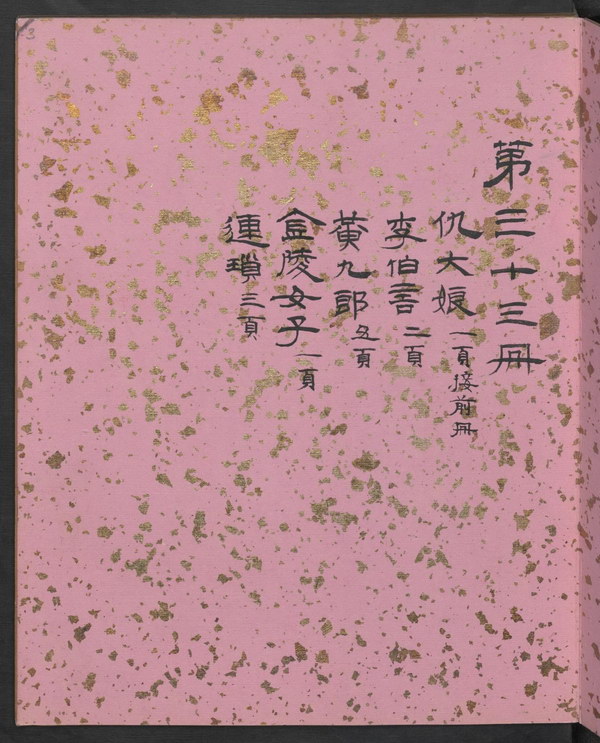 第三十三冊
仇大娘 一頁接前冊
李伯言 二頁
黃九郎 五頁
金陵女子 一頁
連瑣 三頁